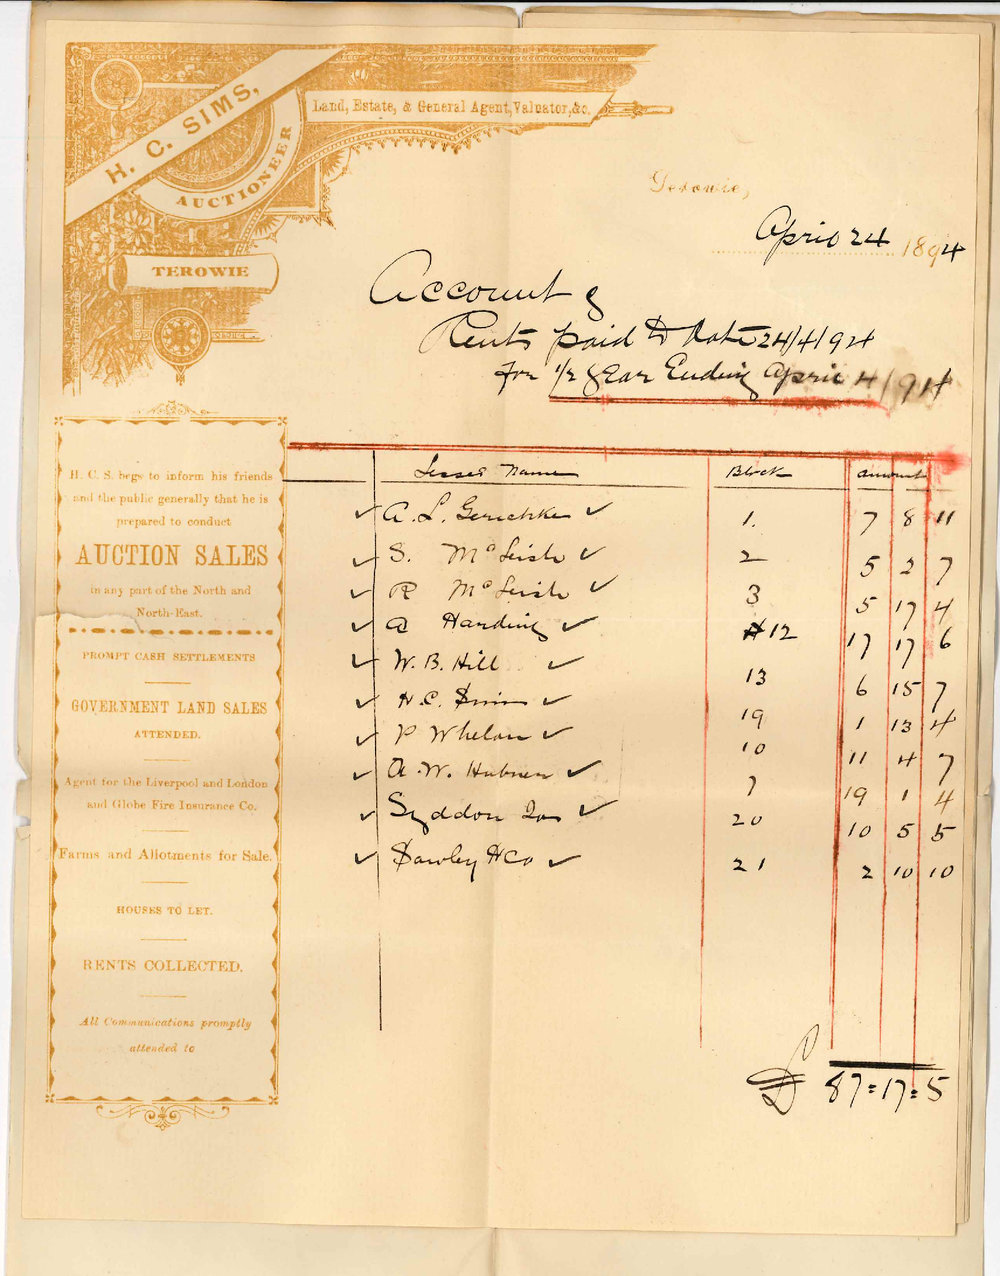 H. C. SIMS,
AUCTIONEER
Land, Estate, & General Agent, Valuator, &c.
TEROWIE
Terowie,
April 24 1894
Account of
Rents paid to date 24/4/94
for 1/2 year Ending April 4/94
H. C. S. begs to inform his friends
and the public generally that he is
prepared to conduct
AUCTION SALES
in any part of the North and
North-East.
PROMPT CASH SETTLEMENTS
GOVERNMENT LAND SALES
ATTENDED.
Agent for the Liverpool and London
and Globe Fire Insurance Co.
Farms and Allotments for Sale.
HOUSES TO LET.
RENTS COLLECTED.
All Communications promptly
attended to
Lessees Name Block amount
✓ A. L. Gerichke ✓ 1. 7 8 11
✓ S. McLeish ✓ 2 5 2 7
✓ R McLeish ✓ 3 5 17 4
✓ A Harding ✓ 12 17 17 6
✓ W. B. Hill ✓ 13 6 15 7
✓ H. C. Sims ✓ 19 1 13 4
✓ P Whelan ✓ 10 11 4 7
✓ A. W. Hubner ✓ 7 19 1 4
✓ Syddon ✓ 20 10 5 5
✓ Sawley & Co ✓ 21 2 10 10
£ 87=17=5